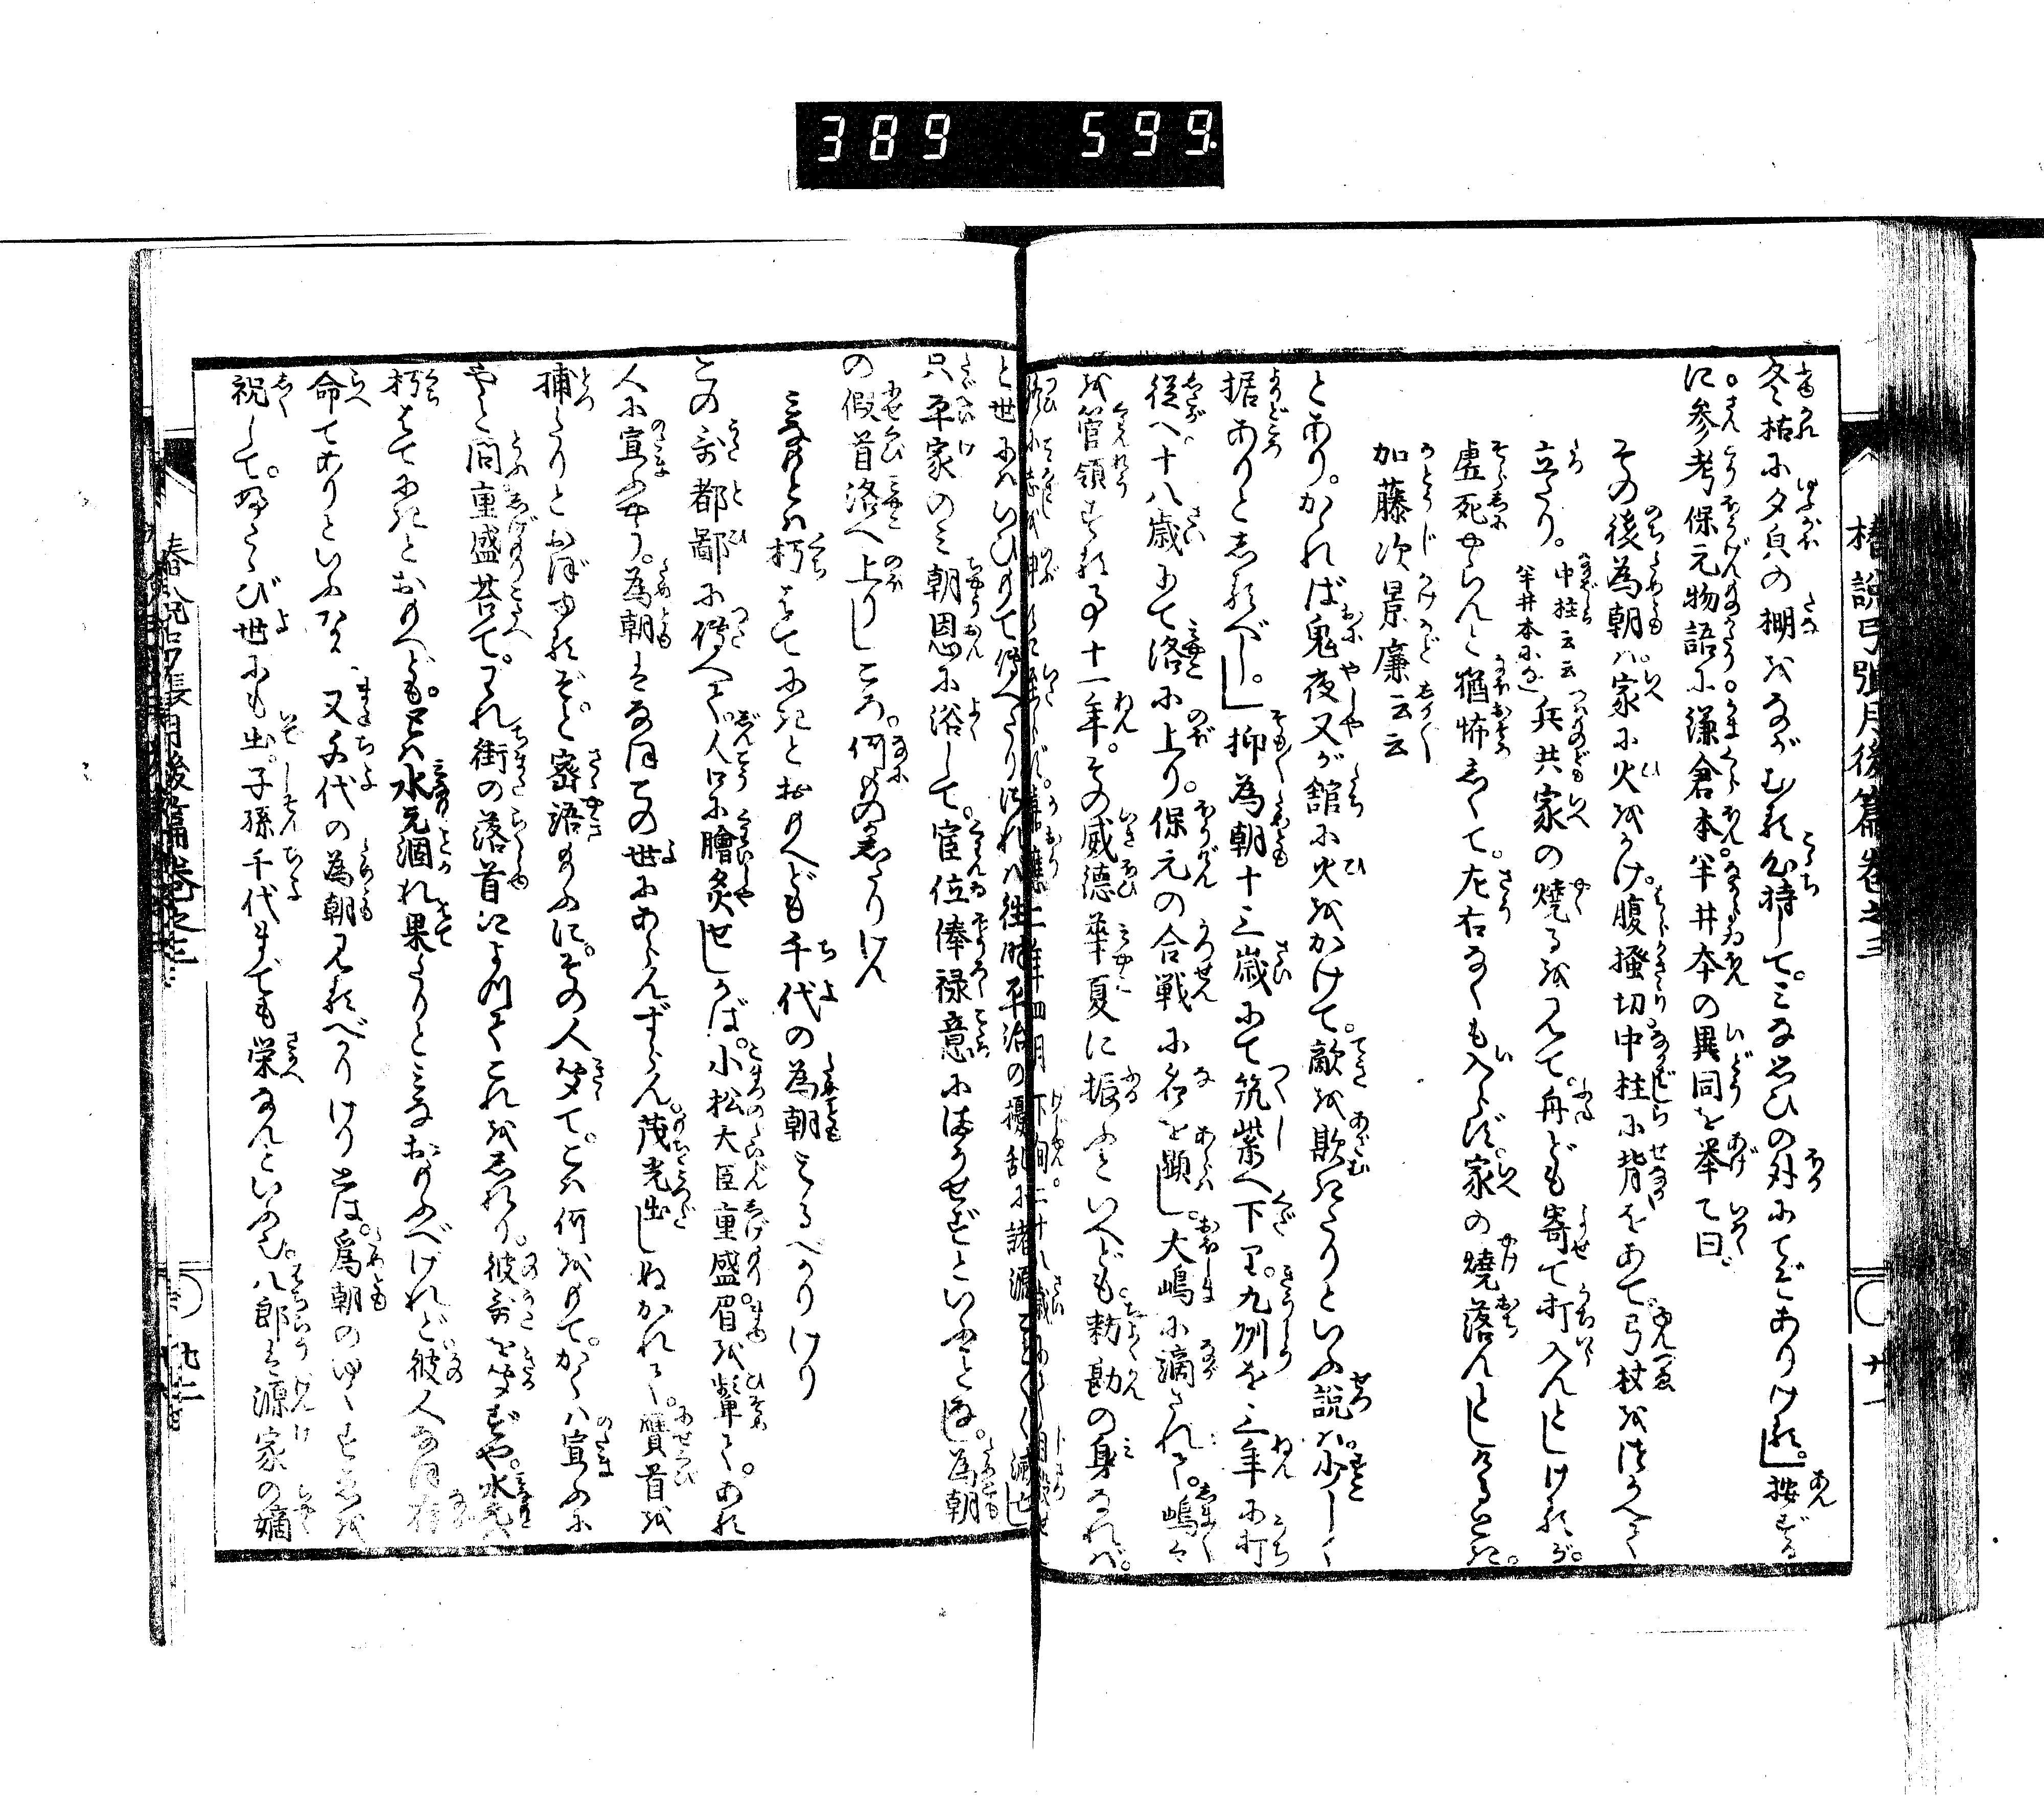 389 599.
椿説弓張月後篇巻之三
廿一
冬枯に夕皃の棚をながむる心持して。みな思ひの外にてぞありける」按ずる
に参考保元物語に鎌倉本半井本の異同を挙て曰
その後為朝は家に火をかけ。腹掻切中柱に背をあて。弓杖をつかへて
立たり。中柱云云半井本に兵共家の焼るを見て。舟ども寄て打入んとしけるが。
虚死やらんと猶怖しくて。左右なくも入らず。家の焼落んとしけるとき。
加藤次景廉云云
とあり。かゝれば鬼夜叉が舘に火をかけて。敵を欺きたりといふ説は。少しく
據ありとしるべし。」抑為朝十三歳にて筑紫へ下り。九州を三年に打
従へ十八歳にて洛に上り。保元の合戦に名を顕し。大嶋に謫されて。嶋を
管領する事十一年。その威徳華夏に振ふといへども。勅勘の身なれば。
と世にはいひもて傳へたりける
只平家のみ朝恩に浴して。官位俸禄意にまかせずといふことなし。為朝
の假首洛へ上りしころ。何ものゝ
みなもとは朽はてにきとおもへども千代の為朝みるべかりけり
この歌都鄙に傳へて。人口に膾炙せしかば。小松大臣重盛。眉を顰て。ある
人に宣ふやう。為朝はなほこの世にあらんずらん。茂光出しぬかれて。贋首を
捕たりとおぼゆるぞと密語給ふに。その人聞て。こは何をもて。かくは宣ふに
やと問。重盛答て。われ街の落首によりてこれをしれり。彼歌を聞ずや。水元は
朽はてにきとおもへども。とは水元涸れ果たりとみなおもふべけれど。彼人なほ存
命てありといふなり。又千代の為朝見るべかりけりとは。為朝のゆくすゑを
祝して。ふたゝび世にも出。子孫千代までも栄なんといへり。八郎は源家の嫡
椿説弓張月後篇巻之三